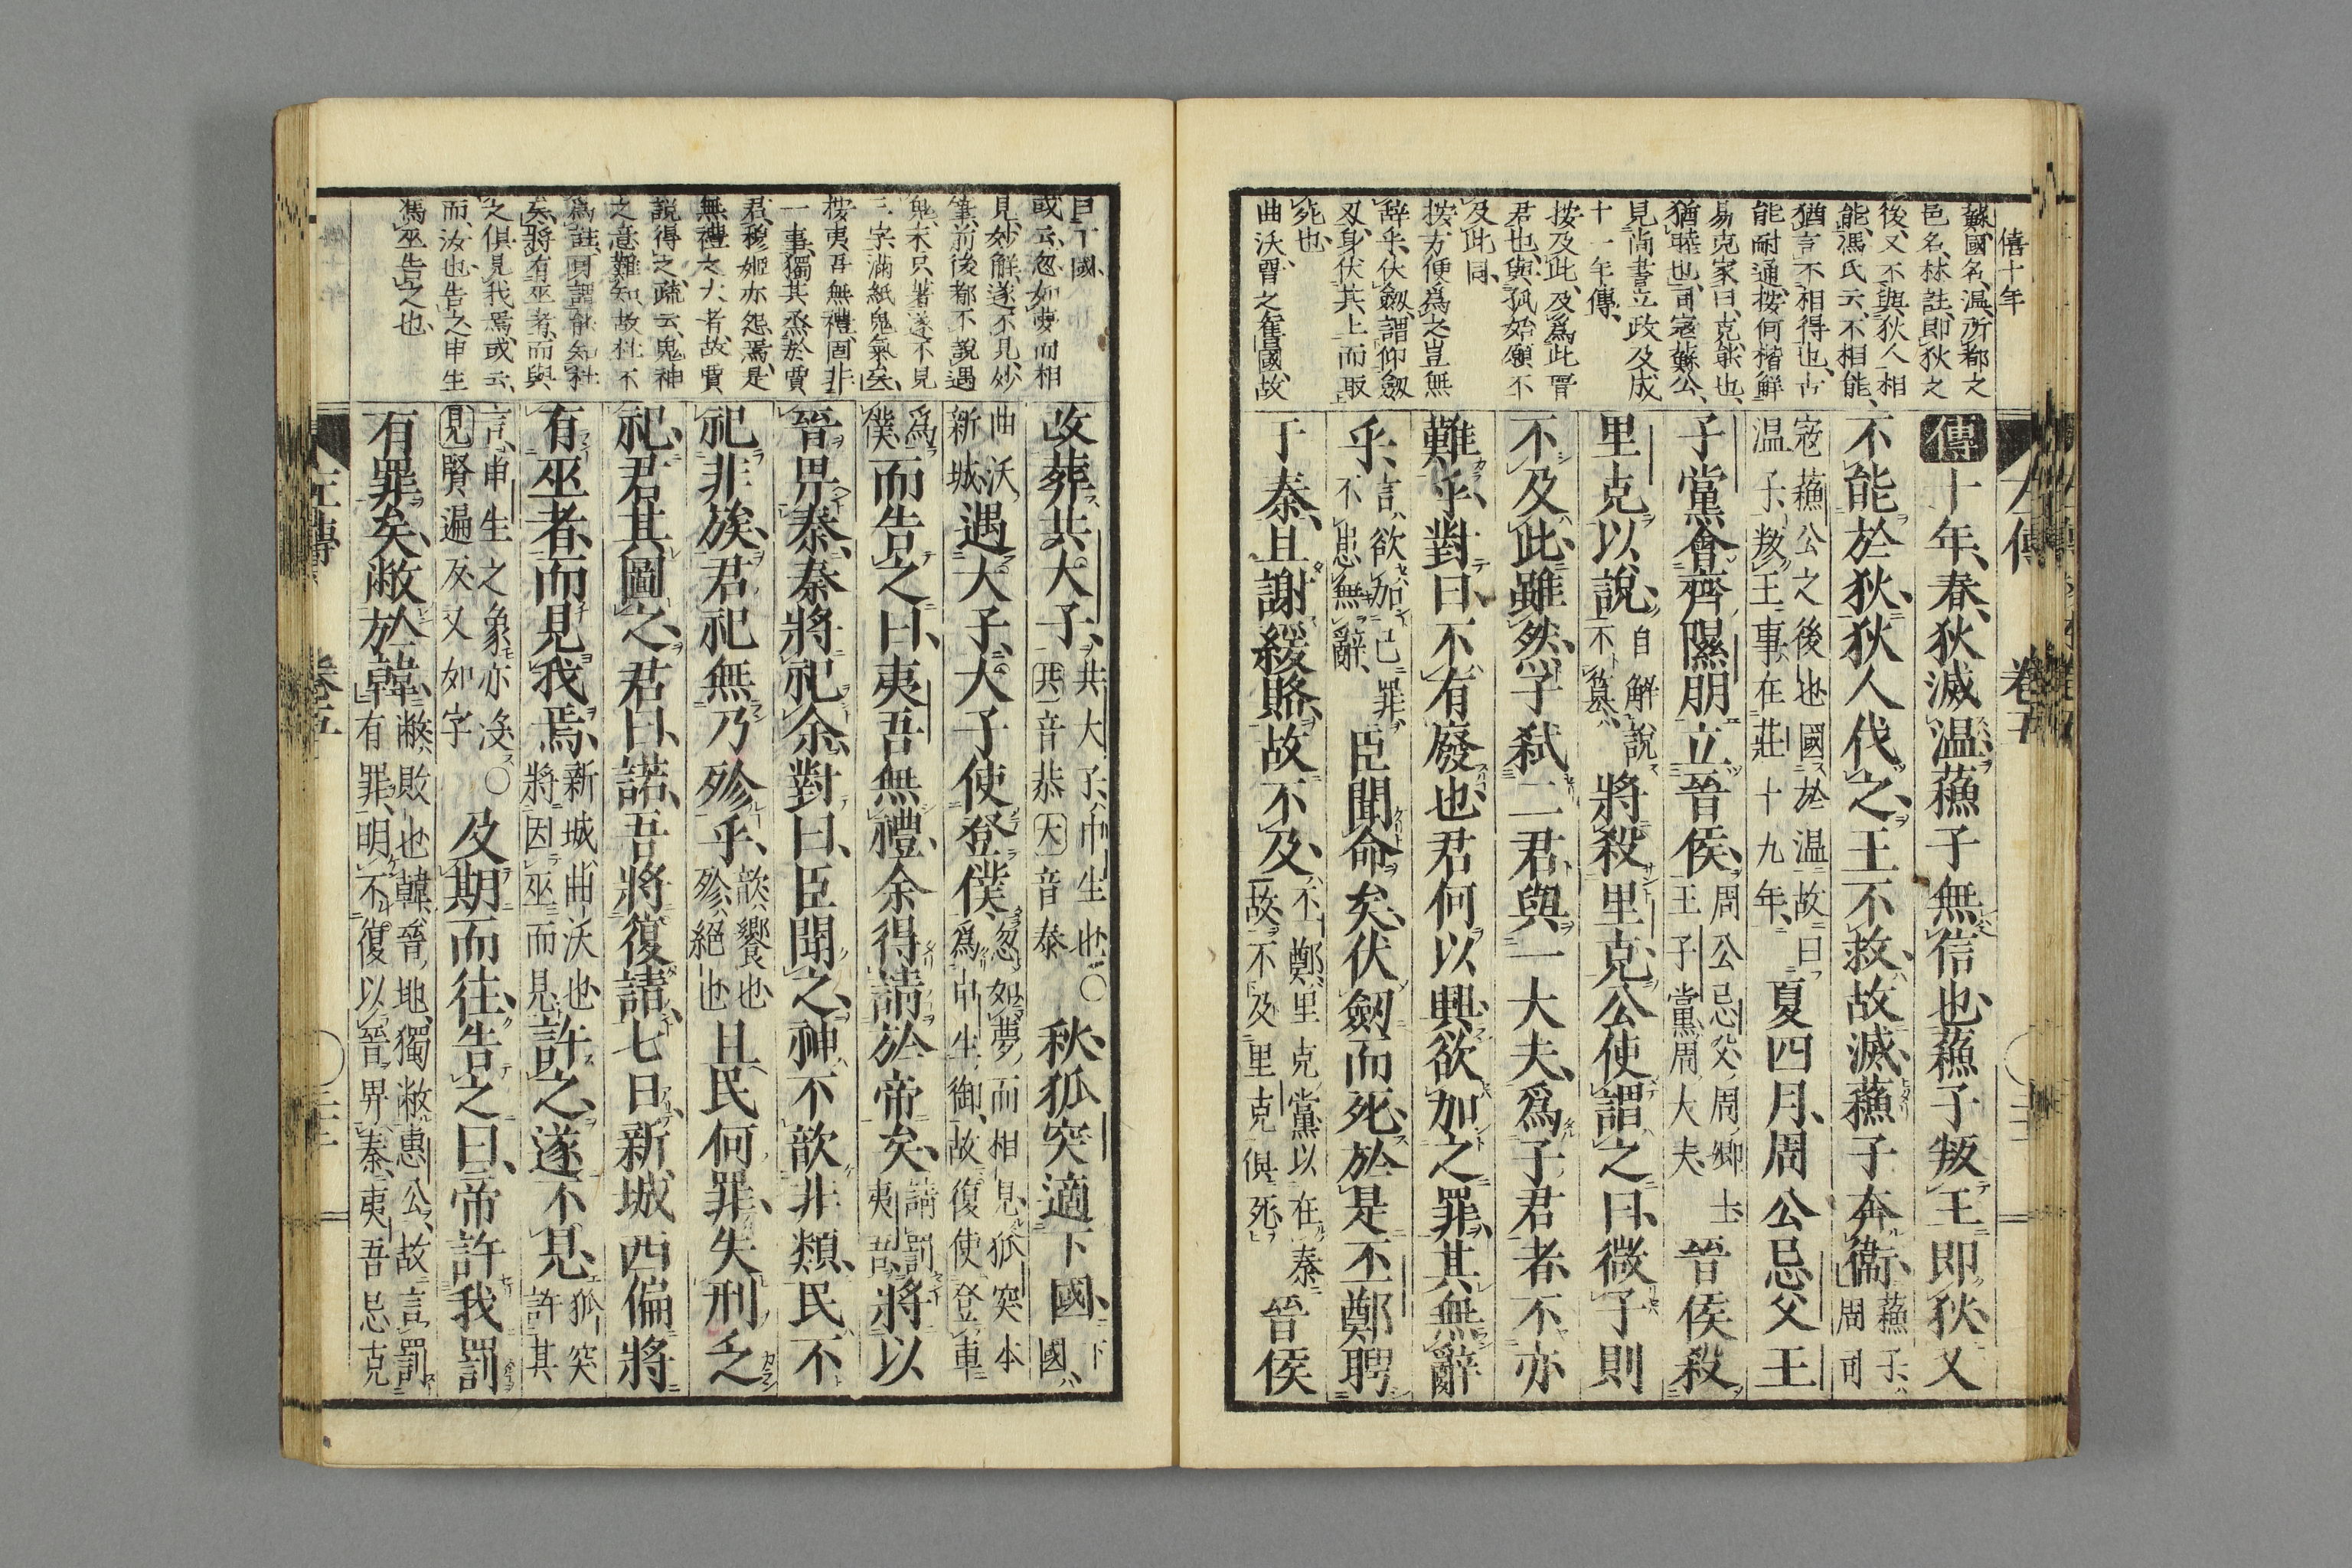 僖十年
蘇國名、温所都之
邑名、林註、即狄之
後、又不與狄人相
能、馮氏云、不相能、
猶言不相得也、古
能耐通、按何楷鮮
易克家曰、克、能也、
猶睦也、司寇蘇公、
見尚書立政及成
十一年傳、
按及此、及爲此晉
君也、與孤始願不
及此同、
按方便爲之豈無
辭乎、伏劔、謂仰劔
刄、身伏其上而取
死也、
曲沃、晋之舊國、故
傳十年、春、狄滅温、蘓子無信也、蘓子叛王即狄、又
不能於狄、狄人伐之、王不救、故滅、蘓子奔衞、蘓子、周司
寇蘓公之後也、國於温、故曰温子、叛王事、在莊十九年、夏四月、周公忌父王
子黨會齊隰朋立晉侯、周公忌父、周卿士、王子黨、周大夫、晉侯殺
里克以說、自解說不篡、將殺里克、公使謂之曰、微子則
不及此、雖然、子弑二君、與一大夫、爲子君者、不亦
難乎、對曰、不有廢也、君何以興、欲加之罪、其無辭
乎、言欲加己罪、不患無辭、臣聞命矣、伏劔而死、於是丕鄭聘
于秦、且謝緩賂、故不及、丕鄭、里克黨、以在秦、故不及里克俱死、晉侯
左傳 卷五
曰下國、
或云、忽如夢而相
見、妙解、遂不見、妙
筆、前後都不說遇
鬼、末只著遂不見
三字、滿紙鬼氣矣、
按夷吾無禮、固非
一事、獨其烝於賈
君、穆姬亦怨焉、是
無禮之大者、故賈
說得之、疏云、鬼神
之意難知、故杜不
爲註、
矣、將有巫者、而與
之俱見我焉、或云、
而、汝也、告之申生
馮巫告之也、
改葬共大子、共大子、申生也、○共音恭大音泰秋、狐突適下國、下國、
曲沃新城、遇大子、大子使登僕、忽如夢而相見、狐突本爲申生御、故復使登車
爲僕、而告之曰、夷吾無禮、余得請於帝矣、請罰夷吾、將以
晉畀秦、秦將祀余、對曰、臣聞之、神不歆非類、民不
祀非族、君祀無乃殄乎、歆、饗也、殄、絕也、且民何罪、失刑乏
祀、君其圖之、君曰、諾、吾將復請、七日、新城西偏將
有巫者而見我焉、新城、曲沃也、將因巫而見、許之、遂不見、狐突許其
言、申生之象亦没、○見賢遍反又如字及期而往、告之曰、帝許我罰
有罪矣、敝於韓、敝、敗也、韓、晉地、獨敝惠公、故言罰有罪、明不復以晉畀秦、夷吾忌克
左傳 卷五